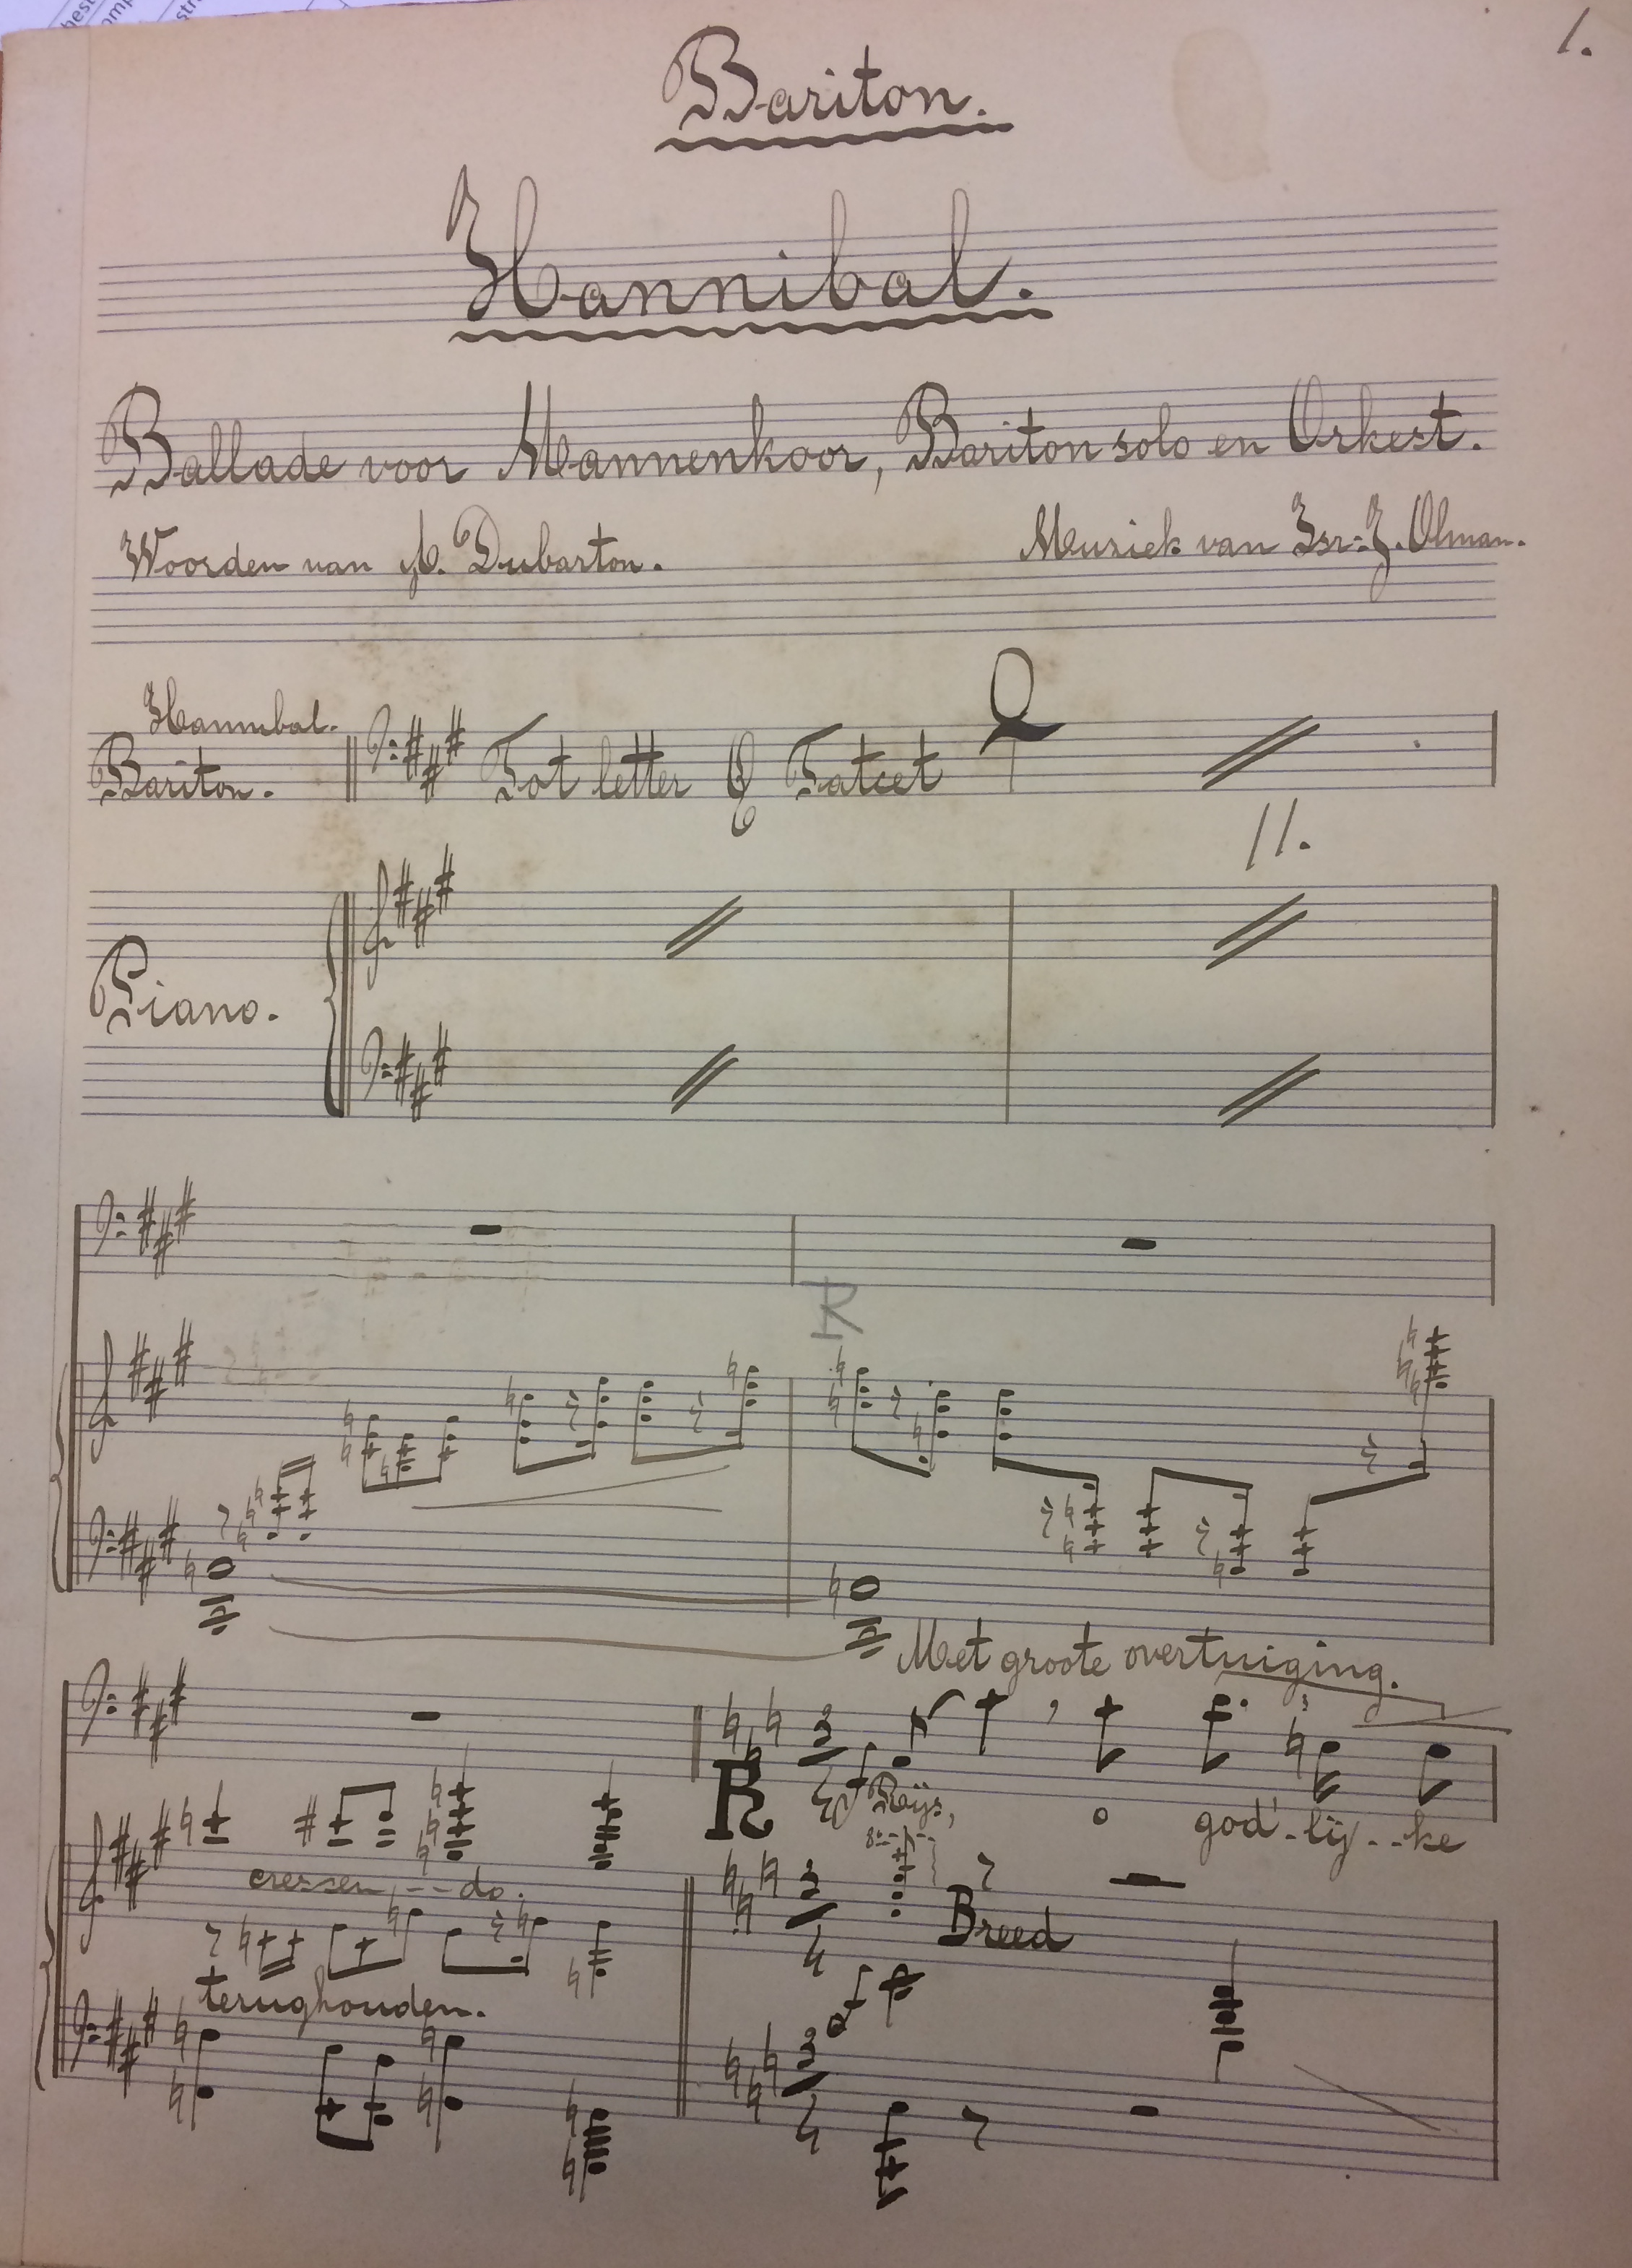 1.
Bariton.
Hannibal.
Ballade voor Mannenkoor, Bariton solo en Orkest.
Woorden van A. Dubarton. Muziek van Isr: J. Olman.
Hannibal.
Bariton. Tot letter Q Tatcet Q
11.
Piano.
R
Met groote overtuiging.
3
4
R ff Rijs, o god'-lij--ke
8
cressen---do.
3
4
Breed
terughouden.
ff
3
4